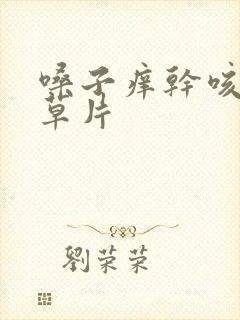 嗓子痒幹咳
草片
劉荣荣